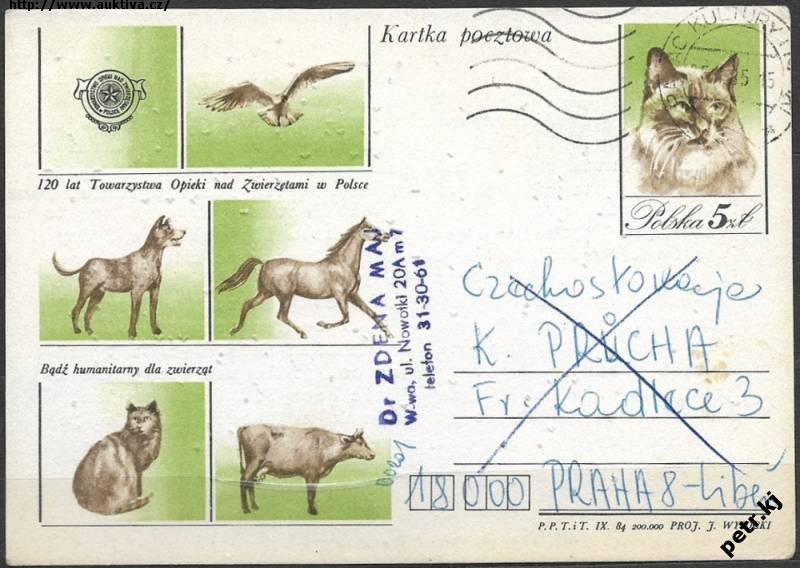 http://www.auktiva.cz/
Kartka pocztowa
KULTURY
120 lat Towarzystwa Opieki nad Zwierzętami w Polsce
Polska 5zł
Bądź humanitarny dla zwierząt
Dr ZDENA MAJ
W-wa, ul. Nowotki 20A m 7
telefon 31-30-61
Czechosłowacja
K. PRŮCHA
Fr. Kadlece 3
18000 PRAHA 8-Libeň
P.P.T.iT. IX. 84 200.000 PROJ. J.
petr.kj